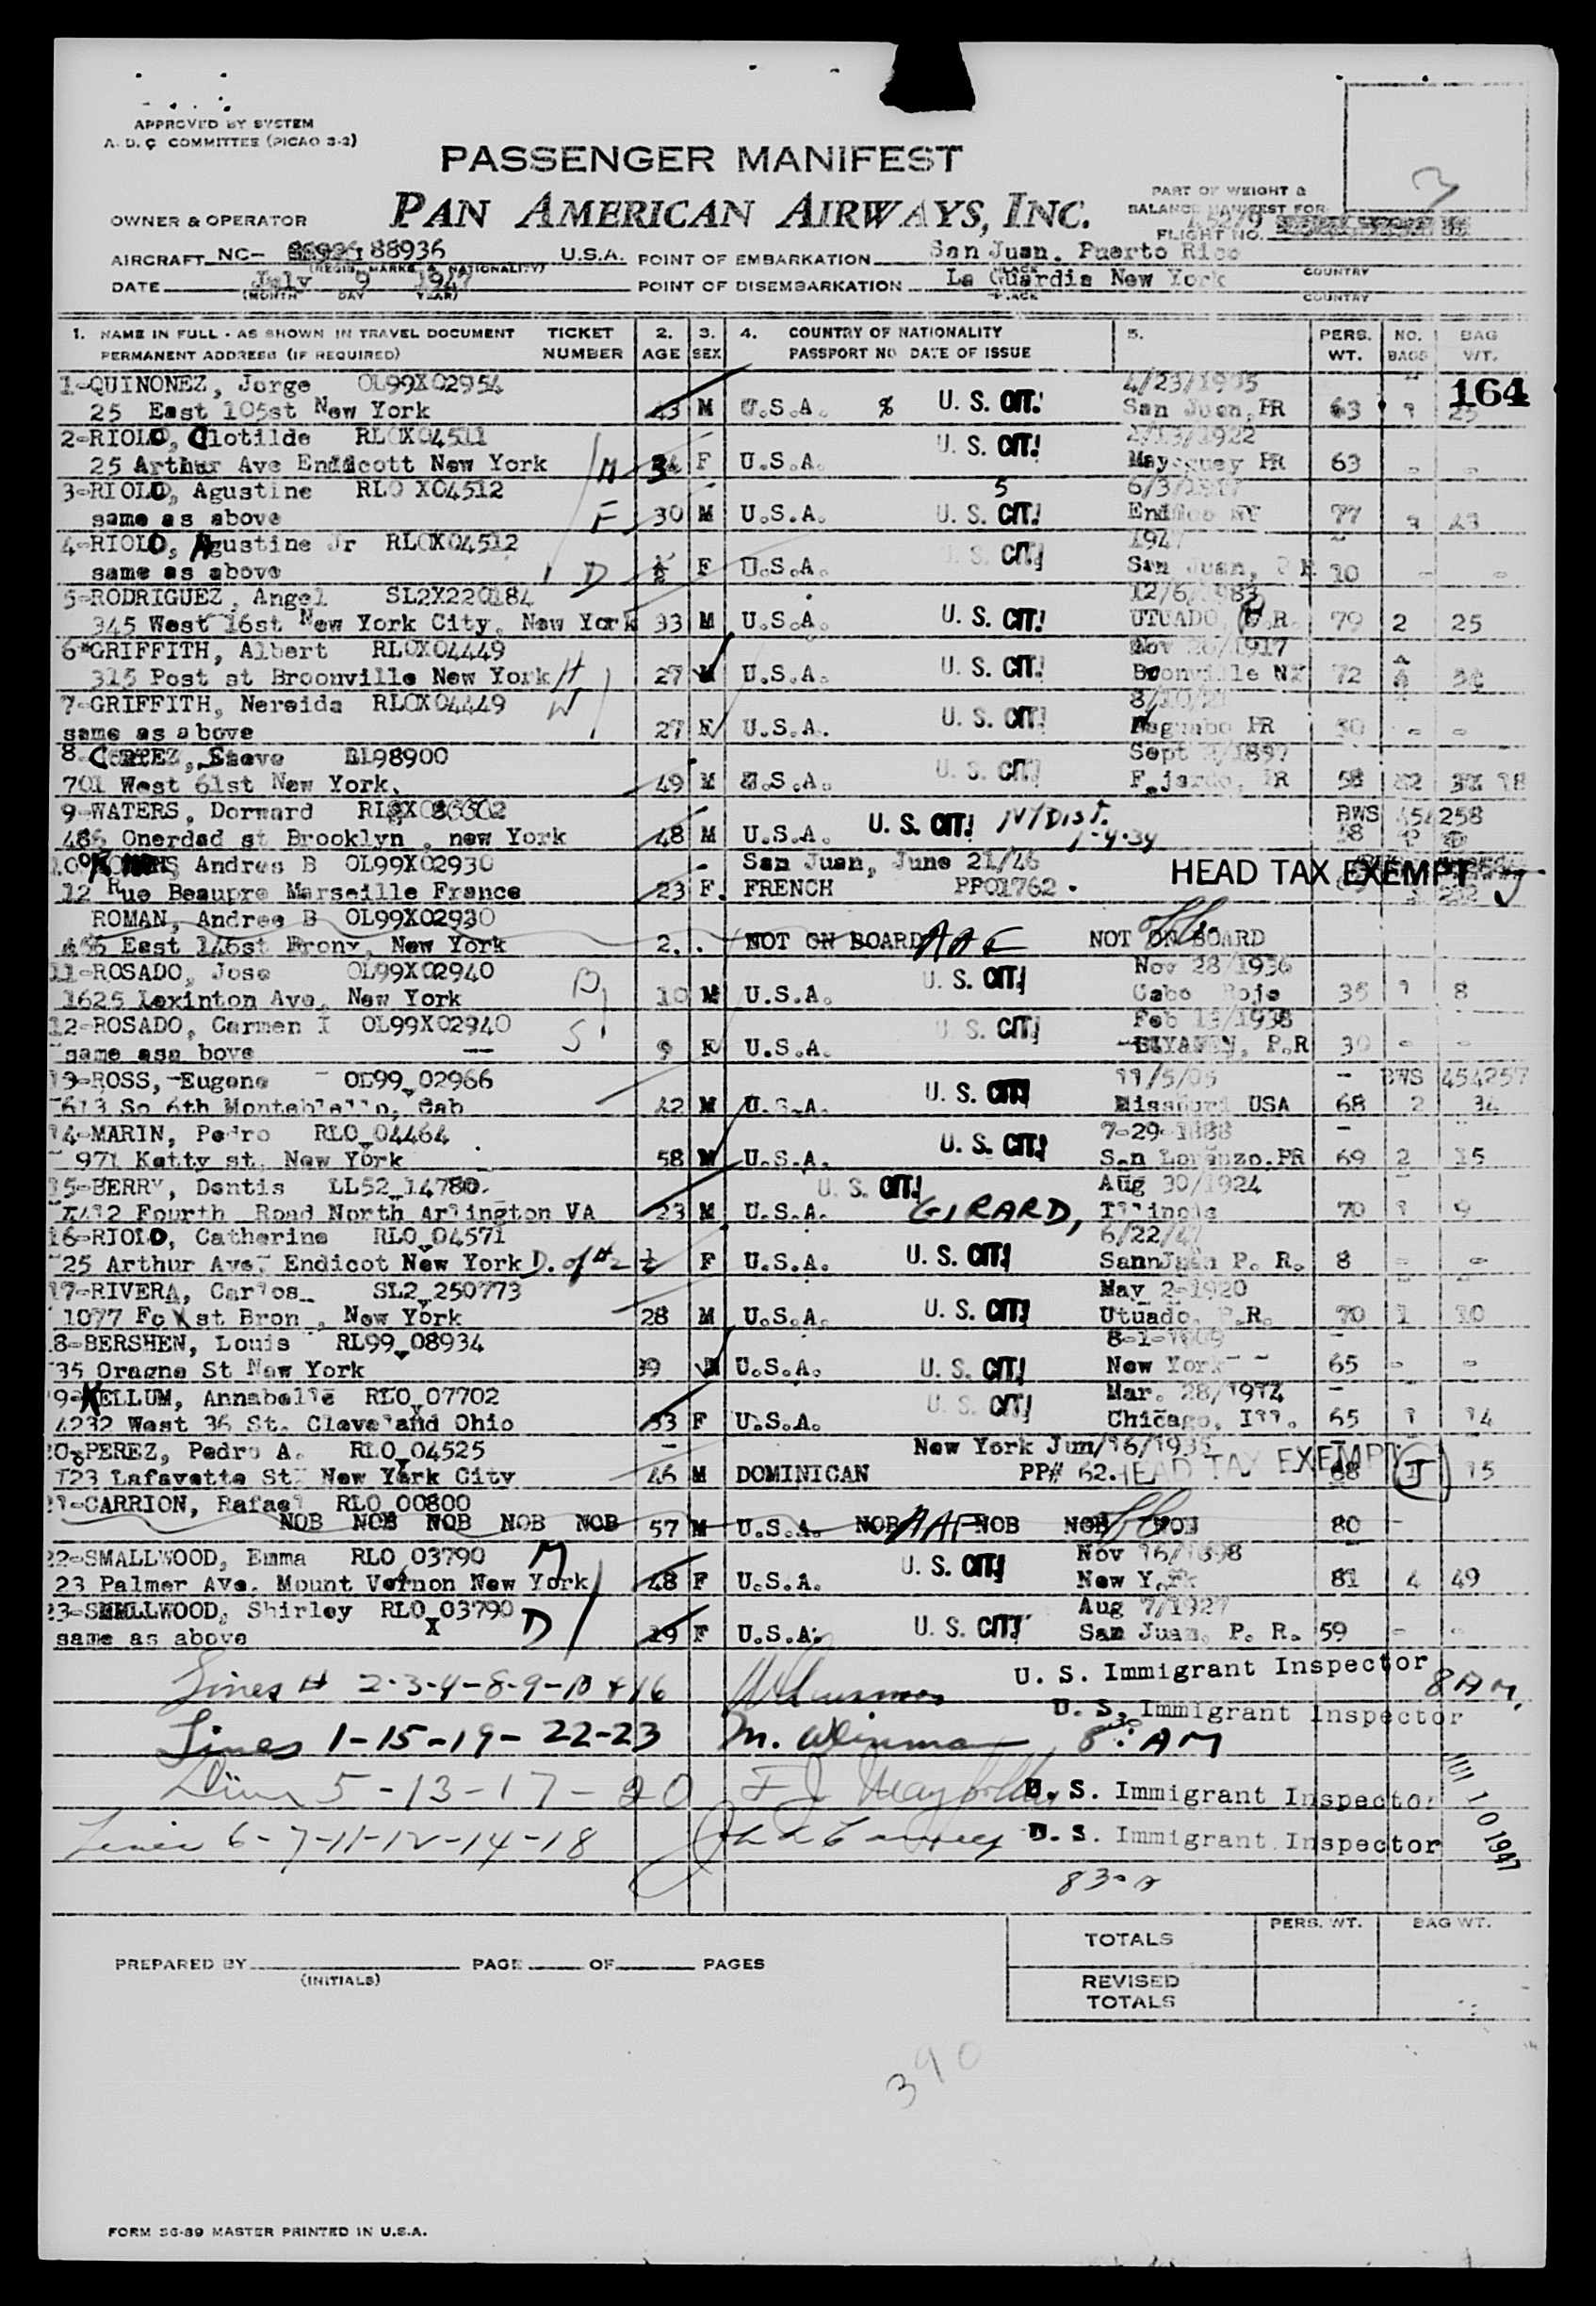 APPROVED BY SYSTEM
A. D. C COMMITTEE (PICAO 3-2)
PASSENGER MANIFEST
PAN AMERICAN AIRWAYS, INC.
PART OF WEIGHT &
BALANCE MANIFEST FOR
FLIGHT NO.
OWNER & OPERATOR
AIRCRAFT NC- 88936 U.S.A. POINT OF EMBARKATION San Juan. Puerto Rico
(REGIS. MARKS & NATIONALITY) PLACE COUNTRY
DATE July 9 1947 POINT OF DISEMBARKATION La Guardia New York
(MONTH DAY YEAR) PLACE COUNTRY
1. NAME IN FULL - AS SHOWN IN TRAVEL DOCUMENT TICKET 2. 3. 4. COUNTRY OF NATIONALITY 5. PERS. NO. BAG
PERMANENT ADDRESS (IF REQUIRED) NUMBER AGE SEX PASSPORT NO DATE OF ISSUE WT. BAGS WT.
1-QUINONEZ, Jorge OL99X02954 4/23/1905 164
25 East 105st New York 43 M U.S.A. % U. S. CIT. San Juan, PR 63 1 25
2-RIOLO, Clotilde RLOX04511
25 Arthur Ave Endicott New York M F U.S.A. U. S. CIT. Mayaguey PR 63 - -
3-RIOLO, Agustine RLO X04512 5
same as above F 30 M U.S.A. U. S. CIT. 77
4-RIOLO, Agustine Jr RLOX04512 1947
same as above D F U.S.A. U. S. CIT. San Juan, P R 10 - -
5-RODRIGUEZ, Angel SL2X220184
345 West 16st New York City, New York 33 M U.S.A. U. S. CIT. UTUADO, P.R. 79 2 25
6-GRIFFITH, Albert RLOX04449 Nov 1917
315 Post st Broonville New York H 27 M U.S.A. U. S. CIT. 72
7-GRIFFITH, Nereida RLOX04449 W
same as above 27 F U.S.A. U. S. CIT. Naguabo PR 50 - -
8-CORTEZ, Steve RL98900 Sept 1897
701 West 61st New York. 49 M U.S.A. U. S. CIT. Fajardo, PR 58 18
9-WATERS, Dorward BWS 454258
486 Onerdad st Brooklyn, new York 48 M U.S.A. U. S. CIT. NY Dist. 1-4-39
Andree B OL99X02930 San Juan, June 21/46 HEAD TAX EXEMPT
12 Rue Beaupre Marseille France 23 F. FRENCH PP01762
ROMAN, Andree B OL99X02930
East 146st Bronx, New York 2. . NOT ON BOARD NOT ON BOARD
11-ROSADO, Jose OL99X02940 B Nov 28/1936
1625 Lexinton Ave, New York 10 M U.S.A. U. S. CIT. Cabo Rojo 35 1 8
12-ROSADO, Carmen I OL99X02940 S Feb 13/1938
same asa bove 9 F U.S.A. U. S. CIT. P.R 30 - -
13-ROSS, Eugene OL99 02966 11/5/05 BWS 454257
613 So 6th 42 M U.S.A. U. S. CIT. Missouri USA 68 2 34
14-MARIN, Pedro RLO 04464 7-29-1888
971 Ketty st. New York 58 M U.S.A. U. S. CIT. San Lorenzo.PR 69 2 15
15-BERRY, Dentis LL52 14780 U. S. CIT. Aug 30/1924
Fourth Road North Arlington VA 23 M U.S.A. GIRARD, Illinois 70 1 9
16-RIOLO, Catherine RLO 04571 6/22/47
25 Arthur Ave. Endicot New York D. of #2 F U.S.A. U. S. CIT. SannJuan P. R. 8 - -
17-RIVERA, Carlos SL2 250773 May 2-1920
1077 Fox st Bron, New York 28 M U.S.A. U. S. CIT. Utuado, P.R. 70 1 10
18-BERSHEN, Louis RL99 08934
35 Oragne St New York 39 M U.S.A. U. S. CIT. New York 65 - -
19-KELLUM, Annabelle RLO 07702 Mar. 28/1914
4232 West 36 St. Cleveland Ohio 33 F U.S.A. U. S. CIT. Chicago, Ill. 65 1 14
20-PEREZ, Pedro A. RLO 04525 New York Jun/16/1935
123 Lafayette St. New York City 46 M DOMINICAN PP# 62. HEAD TAX EXEMPT 68 1 15
21-CARRION, Rafael RLO 00800
NOB NOB NOB NOB NOB 57 M U.S.A. NOB NOB NOB NOB 80 -
22-SMALLWOOD, Emma RLO 03790 M Nov 16/1898
23 Palmer Ave. Mount Vernon New York 48 F U.S.A. U. S. CIT. New York 81 4 49
23-SMALLWOOD, Shirley RLO X 03790 D Aug 7/1927
same as above 19 F U.S.A. U. S. CIT. San Juan, P. R. 59 - -
Lines # 2-3-4-8-9-10 + 16 U. S. Immigrant Inspector 8 AM.
U. S. Immigrant Inspector
Lines 1-15-19-22-23 M. Weinman 8:30 AM
5-13-17-20 U. S. Immigrant Inspector
Lines 6-7-11-12-14-18 U. S. Immigrant Inspector
JUL 10 1947
830 A
PERS. WT. BAG WT.
TOTALS
PREPARED BY PAGE OF PAGES
(INITIALS)
REVISED
TOTALS
390
FORM 36-89 MASTER PRINTED IN U.S.A.